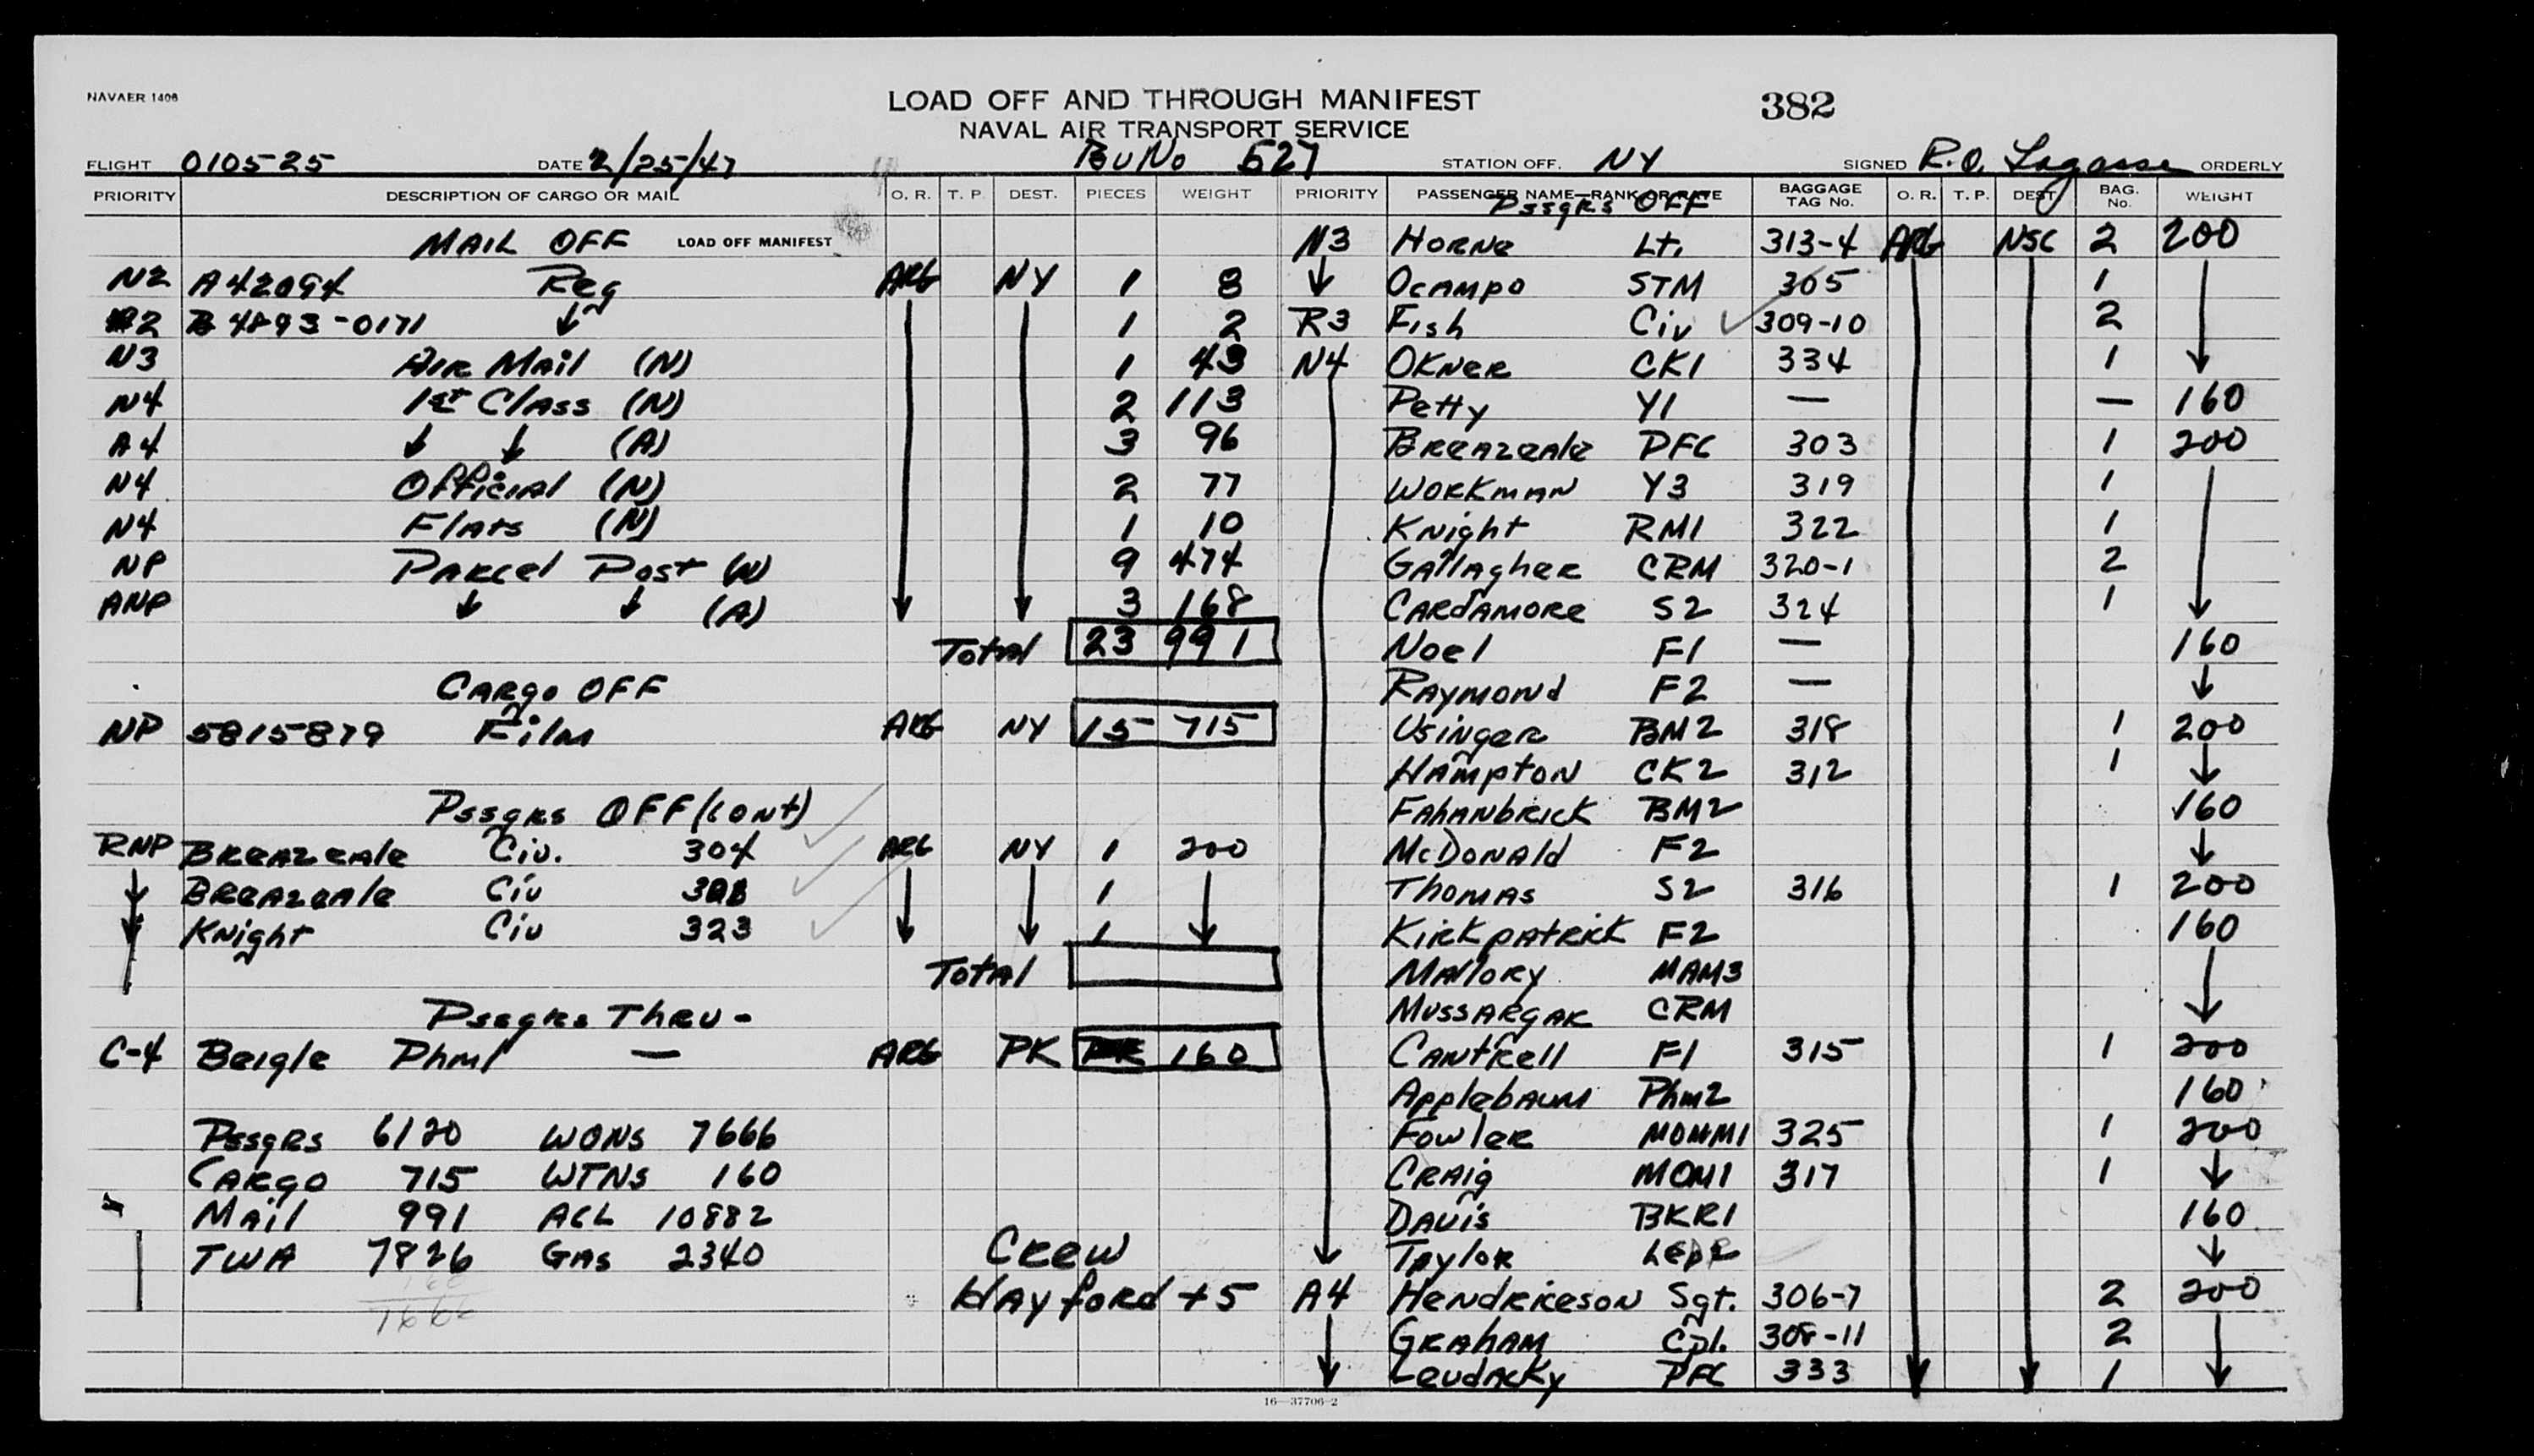 NAVAER 1406
LOAD OFF AND THROUGH MANIFEST
382
NAVAL AIR TRANSPORT SERVICE
FLIGHT 0105-25 DATE 2/25/47 BuNo 527 STATION OFF. NY SIGNED R.O. Lagasse ORDERLY
PRIORITY DESCRIPTION OF CARGO OR MAIL O. R. T. P. DEST. PIECES WEIGHT
MAIL OFF LOAD OFF MANIFEST
N2 A42094 Reg ARG NY 1 8
2 B 4893-0171 ↓ 1 2
N3 AIR MAil (N) 1 43
N4 1st ClAss (N) 2 113
A4 ↓ ↓ (A) 3 96
N4 OfficiAl (N) 2 77
N4 FlAts (N) 1 10
NP PARcel Post (N) 9 474
ANP ↓ ↓ (A) 3 168
TotAl 23 991
CARgo OFF
NP 5815879 Film ARG NY 15 715
PssgRs OFF (cont)
RNP BReAzeAle Civ. 304 ARG NY 1 200
BReAzeAle Civ 1
KNight Civ 323 1
TotAl
PssgRs ThRU-
C-4 Beigle Phm1 — ARG PK 160
PssgRs 6120 WONS 7666
CARgo 715 WTNS 160
MAil 991 ACL 10882
TWA 7826 GAS 2340
160
7666
CRew
HAyford + 5
PRIORITY PASSENGER NAME—RANK OR RATE BAGGAGE TAG No. O. R. T. P. DEST. BAG. No. WEIGHT
PssgRs OFF
N3 HORNe Lt. 313-4 ARG NSC 2 200
↓ OcAmpo STM 305 1
R3 Fish Civ 309-10 2
N4 OKNeR CK1 334 1
Petty Y1 — — 160
BReAzeAle PFC 303 1 200
WORKmAN Y3 319 1
KNight RM1 322 1
GAllAgheR CRM 320-1 2
CARdAmoRe S2 324 1
Noel F1 — 160
RAymoNd F2 — ↓
UsiNgeR BM2 318 1 200
HAmptoN CK2 312 1 ↓
FAhANbRick BM2 160
McDoNAld F2 ↓
ThomAs S2 316 1 200
KiRKpAtRicK F2 160
MAlloRy MAM3
MussARgAR CRM
CANtRell F1 315 1 200
ApplebAum Phm2 160
FowleR MOMM1 325 1 200
CRAig MOM1 317 1 ↓
DAvis BKR1 160
TAyloR ↓
A4 HeNdRickesoN Sgt. 306-7 2 200
GRAhAm Cpl. 308-11 2
LeudAcKy PFC 333 1
16—37706-2